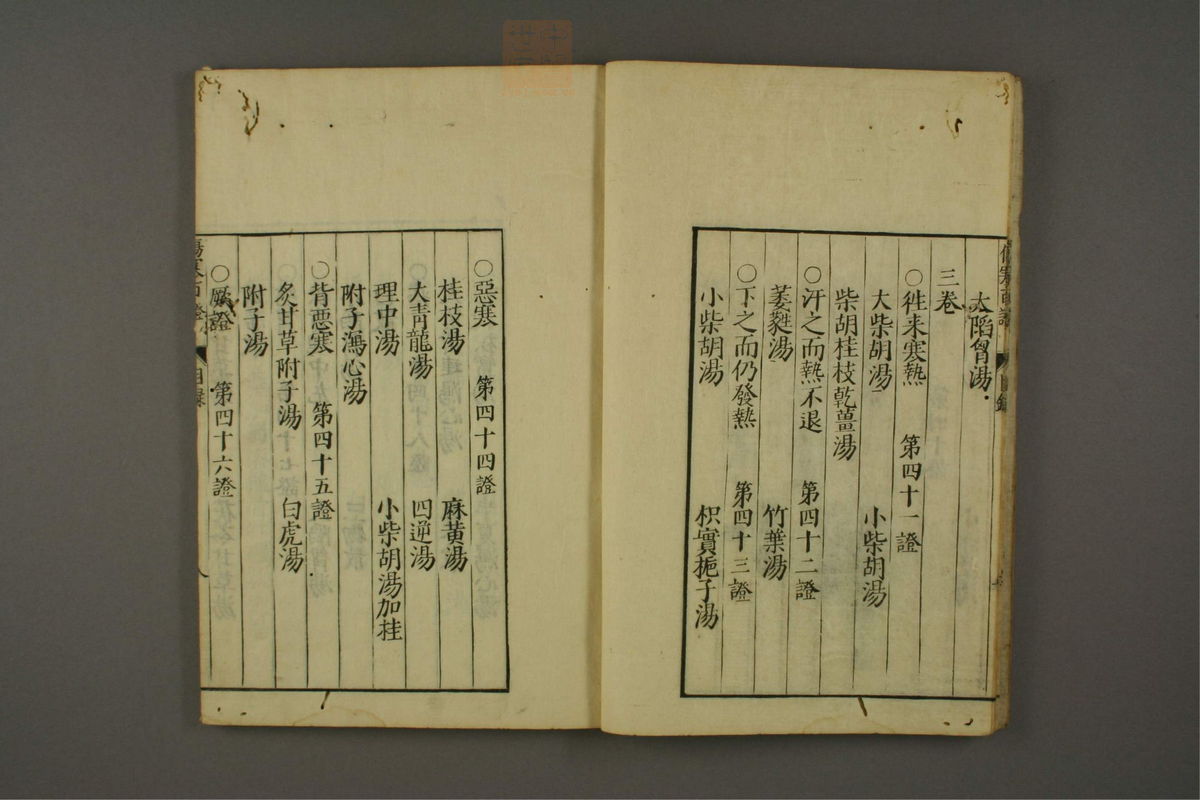 大陷胷湯
三卷
○徃来寒熱　第四十一證
大柴胡湯　小柴胡湯
柴胡桂枝乾薑湯
○汗之而熱不退　第四十二證
萎蕤湯　竹葉湯
○下之而仍發熱　第四十三證
小柴胡湯　枳實梔子湯
○惡寒　第四十四證
桂枝湯　麻黃湯
大青龍湯　四逆湯
理中湯　小柴胡湯加桂
附子瀉心湯
○背惡寒　第四十五證
炙甘草附子湯　白虎湯
附子湯
○厥證　第四十六證
傷寒百證　目録